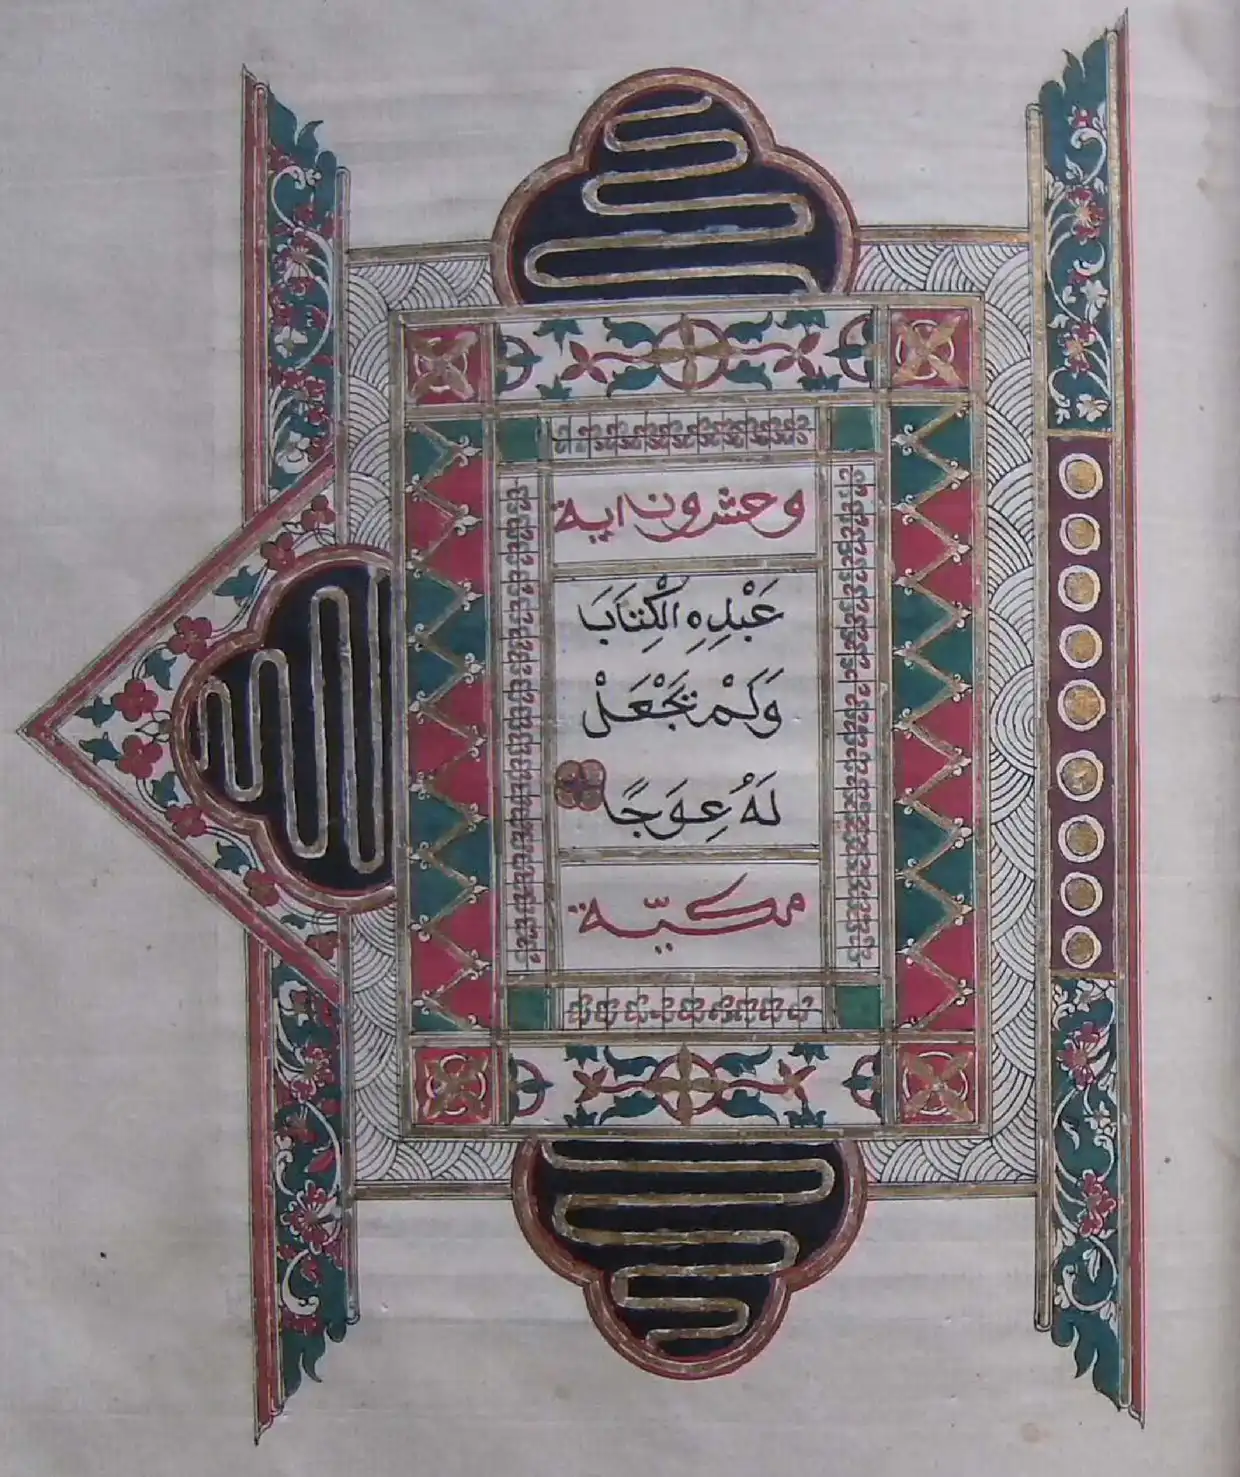 وعشرون اية
عَبْدِهِ الْكِتَابَ
وَلَمْ يَجْعَلْ
لَهُ عِوَجًا
مكيّة